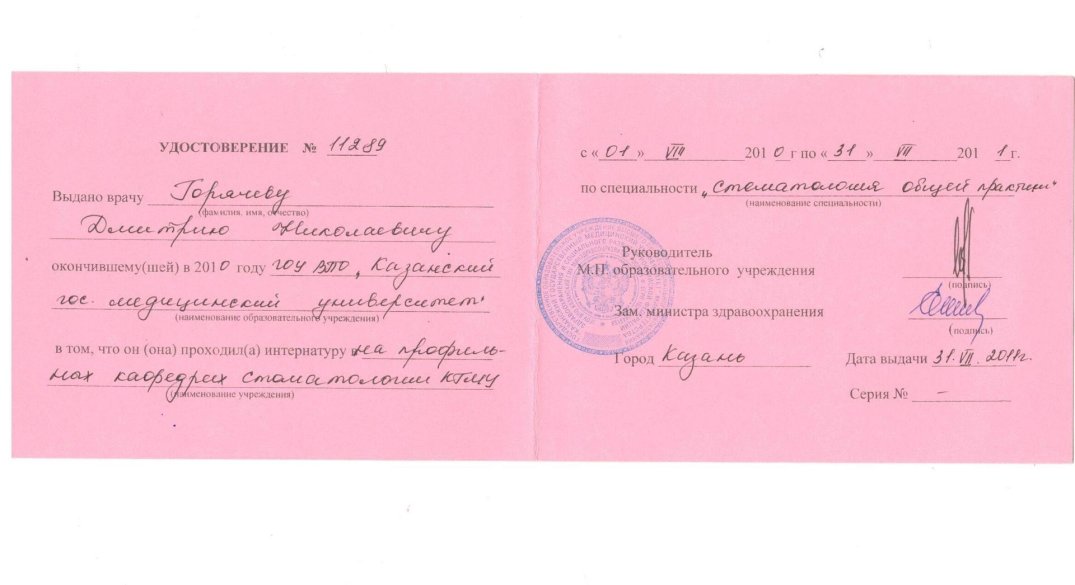 УДОСТОВЕРЕНИЕ № 11289
Выдано врачу Горячеву
(фамилия, имя, отчество)
Дмитрию Николаевичу
окончившему(шей) в 2010 году ГОУ ВПО „Казанский
гос. медицинский университет"
(наименование образовательного учреждения)
в том, что он (она) проходил(а) интернатуру на профиль-
ных кафедрах стоматологии КГМУ
(наименование учреждения)
с « 01 » VIII 2010 г по « 31 » VII 2011 г.
по специальности „Стоматология общей практики"
(наименование специальности)
Руководитель
М.П. образовательного учреждения
(подпись)
Зам. министра здравоохранения
(подпись)
Город Казань Дата выдачи 31. VII. 2011г.
Серия № –